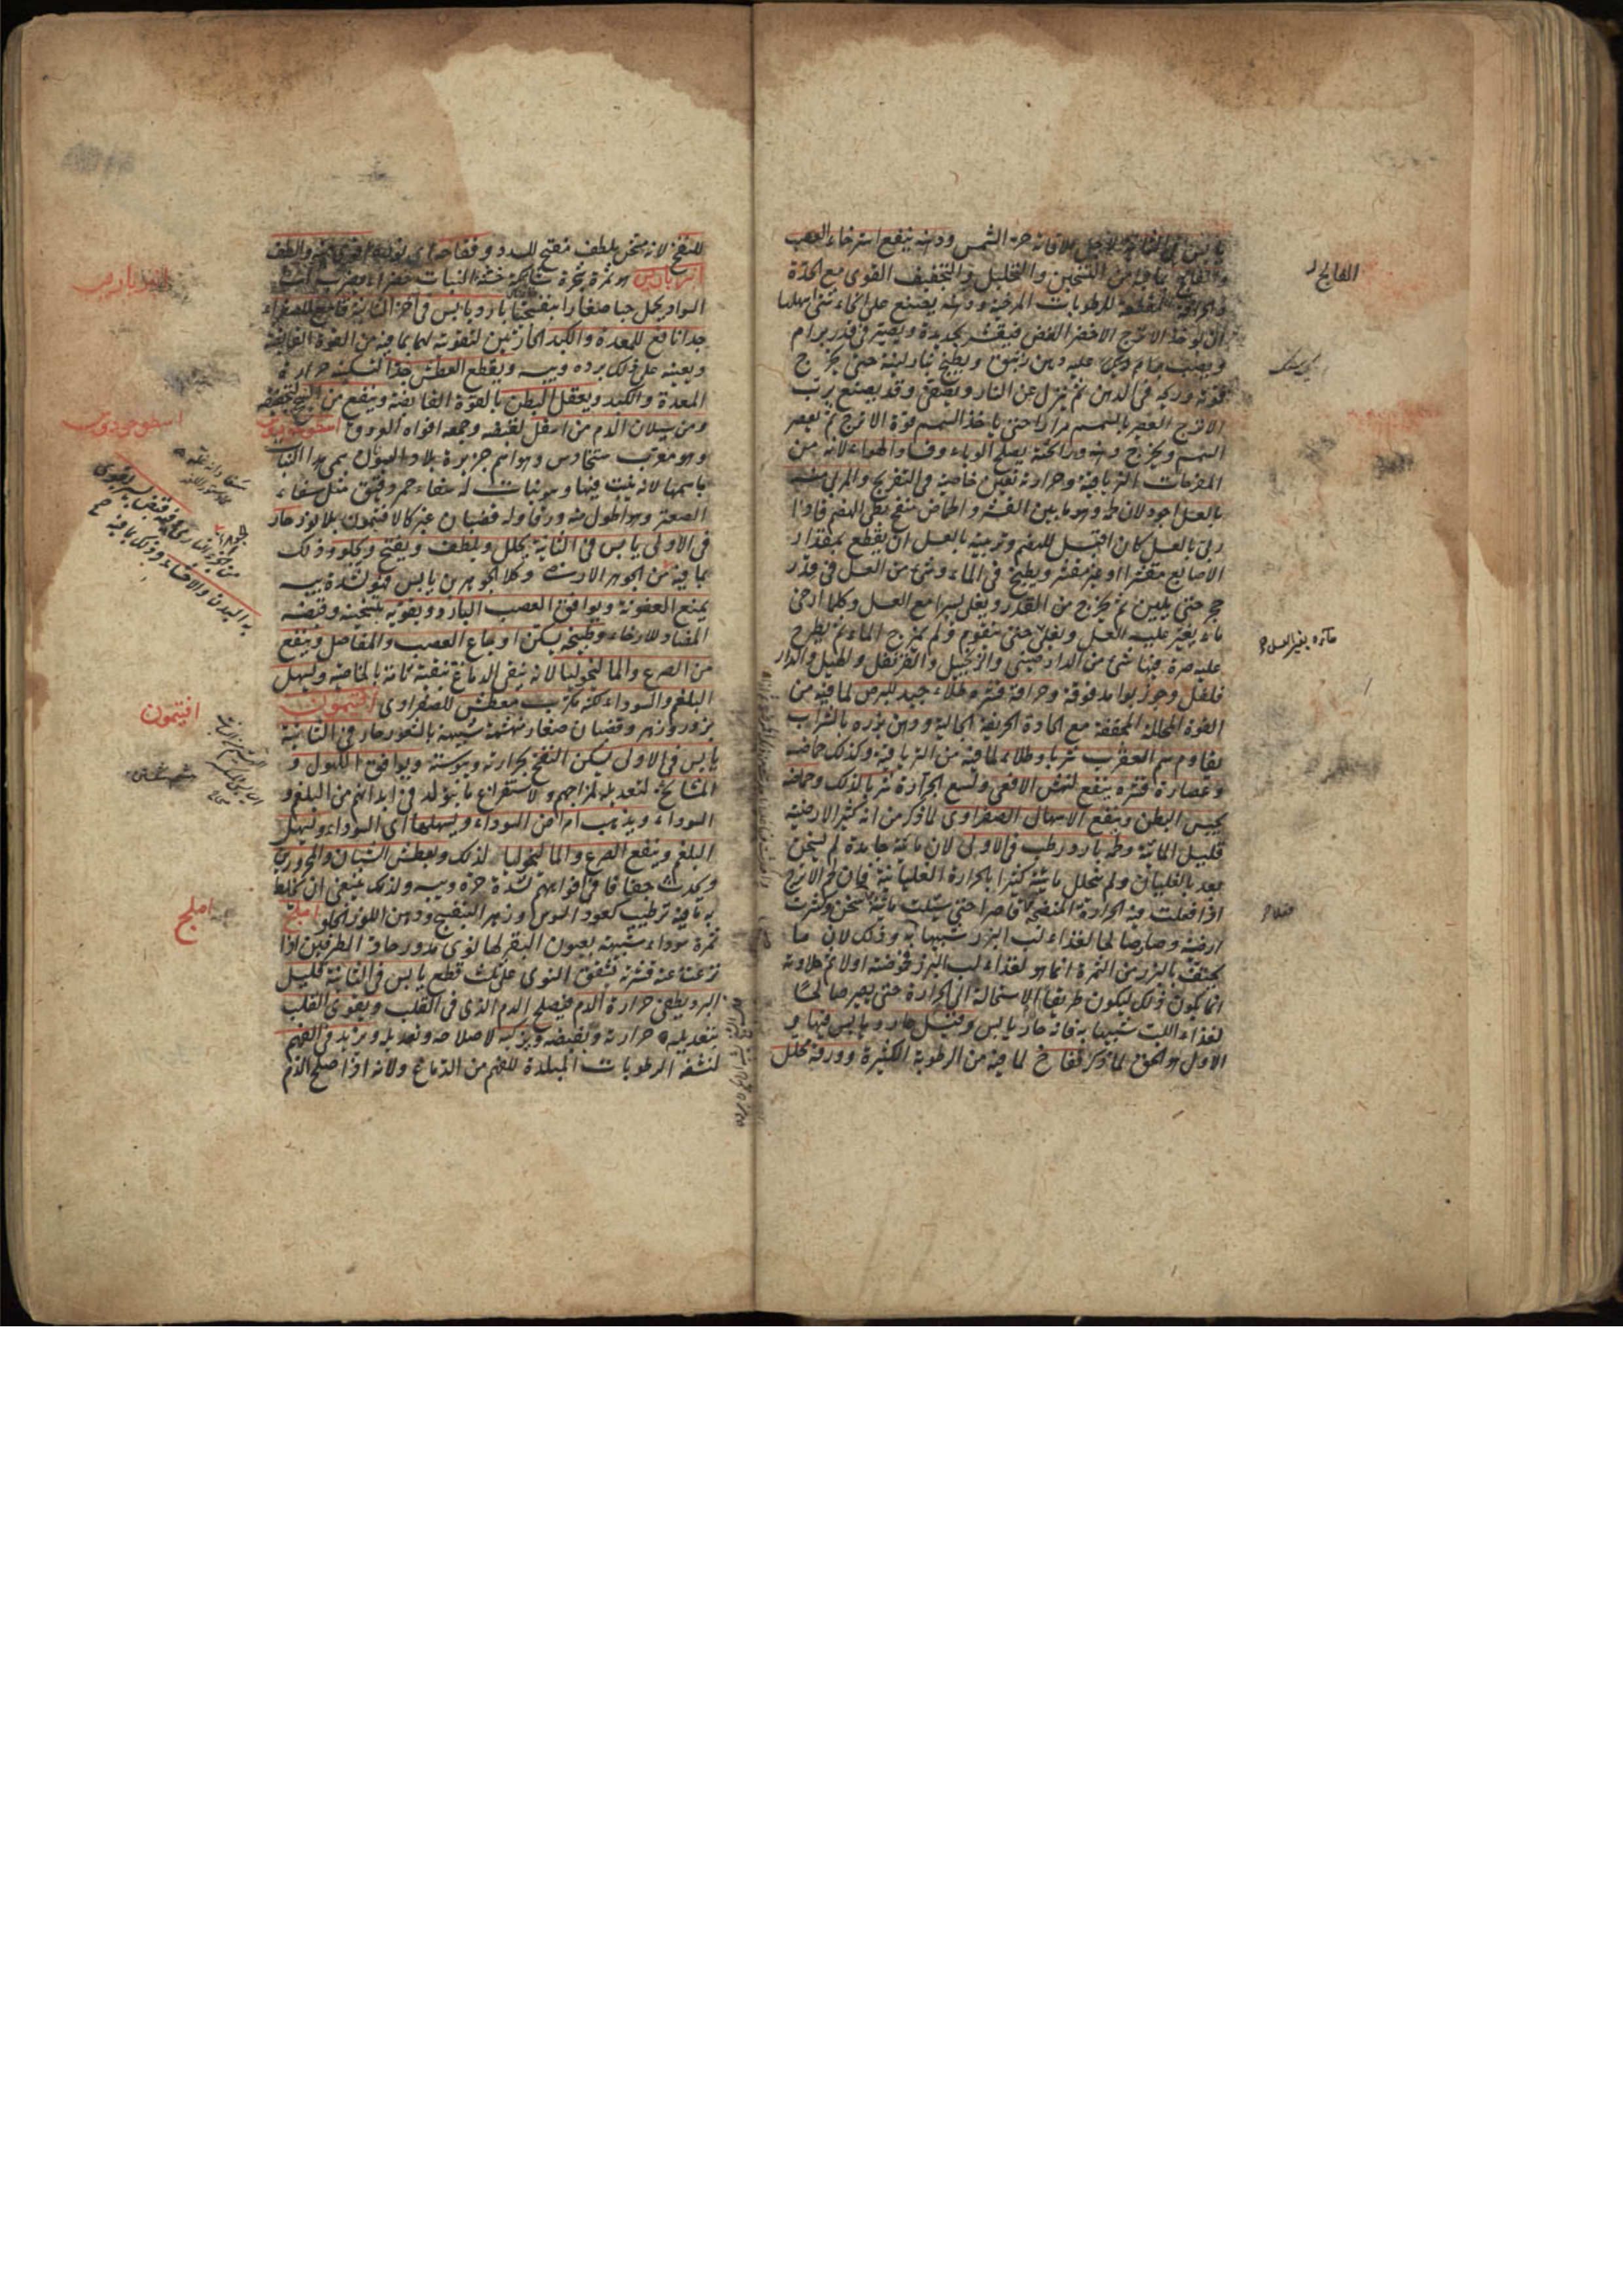 يابس في الثانية لاجل ملاقاته حر الشمس ودهنه ينفع استرخاء العصب
والفالج لما فيه من التسخين والتحليل والتجفيف القوى مع الحدة
المقطعة للرطوبات المرخية ودهنه يصنع على انحاء شتى اسهلها
ان يوخذ الاترج الاخضر الغض فيقشر بحديدة ويصير في قدر برام
ويصب عليه دهن زنبق ويطبخ بنار لينة حتى يخرج
قوته في الدهن ثم ينزل عن النار ويصفى وقد يصنع برب
الاترج العصير بالسمسم مرارا حتى ياخذ السمسم قوة الاترج ثم يعصر
السمسم ويخرج دهنه ورائحته يصلح الوباء وفساد الهواء لانه من
المفرحات الترياقية وحرارته تعين خاصيته في التفريح والمربى منه
بالعسل اجود لان لحمه وهو ما بين القشر والحماض منفخ بطى الهضم فاذا
ربى بالعسل كان اقبل للهضم وتربيته بالعسل ان يقطع بمقدار
الاصابع مقشرا او غير مقشر ويطبخ في الماء وشئ من العسل في قدر
حجر حتى يلين ثم يخرج من القدر ويغلى يسيرا مع العسل وكلما ارخى
ماءه يغير عليه العسل ويغلى حتى يتقوم ولم يمتزج الماء ثم يطرح
عليه صرة فيها شئ من الدارصينى والزنجبيل والقرنفل والهيل والدار
فلفل وجوزبوا مدقوقة وحراقة قشره طلاء جيد للبرص لما فيه من
القوة المحللة المجففة مع الحادة الحريفة الجالية ودهن بزره بالشراب
يقاوم سم العقرب شربا وطلاء لما فيه من الترياقية وكذلك حماضه
وعصارة قشره ينفع لنهش الافعى ولسع الجرارة شربا لذلك وحماضه
يحبس البطن وينفع الاسهال الصفراوى لما ذكر من انه كثير الارضية
قليل المائية ولحمه بارد رطب في الاولى لان مائيته جامدة لم يسخن
بعد بالغليان ولم يتحلل مائيته كثيرا بالحرارة الغليانية فان لحم الاترج
اذا فعلت فيه الحرارة المنضجة فعلا قاصرا حتى سالت مائيته سخن وكثرت
ارضيته وصار صالحا لغذاء لب البزر شبيها به وذلك لان ما
يحتف بالبزر من الثمرة انما هو لغذاء لب البزر فحموضته اولا ثم حلاوته
انما يكون ذلك ليكون طريقا الاستحالة الى الحرارة حتى يصير صالحا
لغذاء اللب شبيها به فانه حار يابس وقيل حار ويابس فيها و
الاول هو الحق لما ذكر نفاخ لما فيه من الرطوبة الكثيرة وورقه محلل
الفالج
ماءه يغير العسل
فعلا
للنفخ لانه مسخن يلطف مفتح للسدد وفقاحه اى نوره اقوى منه والطف
انبرباريس هو ثمرة شجرة شائكة خشنة النبات خضراء يضرب الى
السواد يحمل حبا صغارا بنفسجيا بارد يابس في آخر الثانية قامع للصفراء
جدا نافع للمعدة والكبد الحارتين لتقويته لهما بما فيه من القوة القابضة
ويعينه على ذلك برده ويبسه ويقطع العطش جدا لتسكينه حرارة
المعدة والكبد ويعقل البطن بالقوة القابضة وينفع من السحج لتجفيفه
ومن سيلان الدم من اسفل لقبضه وجمعه افواه العروق اسطوخودوس
وهو معرب ستخادوس وهو اسم جزيرة ببلاد اليونان سمى هذا النبات
باسمها لانه ينبت فيها وهو نبات له سفاء حمر دقيق مثل سفاء
الصعتر وهو اطول منه ورقا وله قضبان غبر كالافتيمون بلا نور حار
في الاولى يابس في الثانية يحلل ويلطف ويفتح ويجلو وذلك
بما فيه من الجوهر الارضى وكلا الجوهرين يابس فهو لشدة يبسه
يمنع العفونة ويوافق العصب البارد ويقويه بتسخينه وقبضه
المضاد للارخاء وطبيخه يسكن اوجاع العصب والمفاصل وينفع
من الصرع والمالنخوليا لانه ينقى الدماغ تنقية تامة بالخاصية ويسهل
البلغم والسوداء لكنه مكرب معطش للصفراوى افتيمون
بزور وزهر وقضبان صغار متهشمة شبيهة بالصعتر حار في الثانية
يابس في الاولى يسكن النفخ بحرارته ويبوسته ويوافق الكهول و
المشائخ لتعديله لمزاجهم ولاستفراغ ما يتولد في ابدانهم من البلغم و
السوداء ويذهب امراض السوداء ويسهلها اى السوداء ويسهل
البلغم وينفع الصرع والمالنخوليا لذلك ويعطش الشبان والمحرورين
ويحدث جفافا في افواههم لشدة حره ويبسه ولذلك ينبغى ان يخلط
به ما فيه ترطيب كعود السوس وزهر البنفسج ودهن اللوز الحلو املج
ثمرة سوداء شبيهة بعيون البقر لها نوى مدور حاد الطرفين اذا
نزعت عنه قشرته تشقق النوى على ثلث قطع يابس في الثانية قليل
البرد يطفى حرارة الدم فيصلح الدم الذى في القلب ويقوى القلب
بتعديله حرارته وتقبيضه وتزكيه لاصلاحه وتعديله ويزيد في الفهم
لنشفه الرطوبات المبلدة للفهم من الدماغ ولانه اذا صلح الدم
انبرباريس
اسطوخودوس
افتيمون
املج